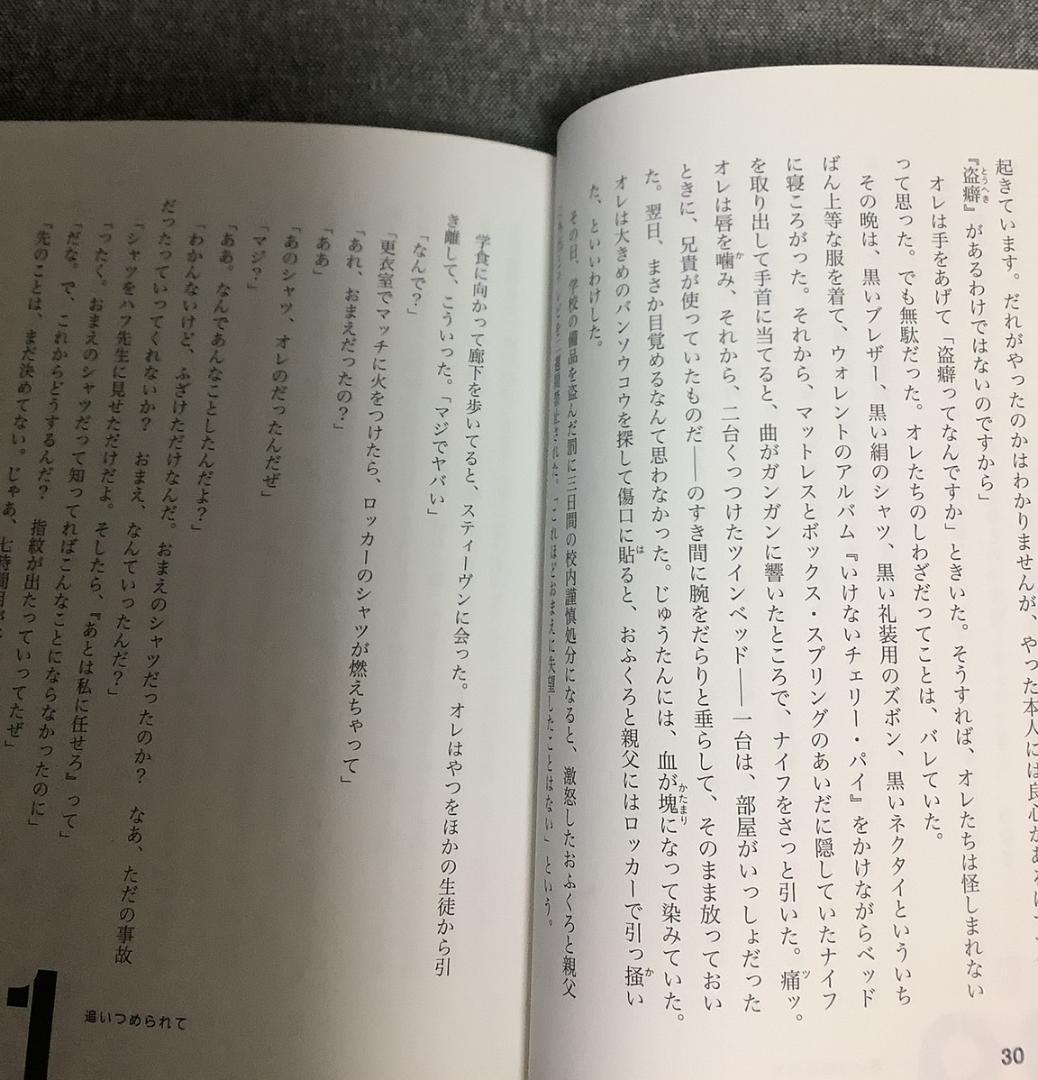 起きています。だれがやったのかはわかりませんが、やった本人には良心が
『盗癖』があるわけではないのですから」
オレは手をあげて「盗癖ってなんですか」ときいた。そうすれば、オレたちは怪しまれない
って思った。でも無駄だった。オレたちのしわざだってことは、バレていた。
その晩は、黒いブレザー、黒い絹のシャツ、黒い礼装用のズボン、黒いネクタイといういち
ばん上等な服を着て、ウォレントのアルバム『いけないチェリー・パイ』をかけながらベッド
に寝ころがった。それから、マットレスとボックス・スプリングのあいだに隠していたナイフ
を取り出して手首に当てると、曲がガンガンに響いたところで、ナイフをさっと引いた。痛ッ。
オレは唇を噛み、それから、二台くっつけたツインベッド――一台は、部屋がいっしょだった
ときに、兄貴が使っていたものだ――のすき間に腕をだらりと垂らして、そのまま放っておい
た。翌日、まさか目覚めるなんて思わなかった。じゅうたんには、血が塊になって染みていた。
オレは大きめのバンソウコウを探して傷口に貼ると、おふくろと親父にはロッカーで引っ掻い
た、といいわけした。
その日、学校の備品を盗んだ罰に三日間の校内謹慎処分になると、激怒したおふくろと親父
週間禁止された。「これほどおまえに失望したことはない」という。
30
学食に向かって廊下を歩いてると、スティーヴンに会った。オレはやつをほかの生徒から引
き離して、こういった。「マジでヤバい」
「なんで？」
「更衣室でマッチに火をつけたら、ロッカーのシャツが燃えちゃって」
「あれ、おまえだったの？」
「ああ」
「あのシャツ、オレのだったんだぜ」
「マジ？」
「ああ。なんであんなことしたんだよ？」
「わかんないけど、ふざけただけなんだ。おまえのシャツだったのか？　なあ、ただの事故
だったっていってくれないか？　おまえ、なんていったんだ？」
「シャツをハフ先生に見せただけだよ。そしたら、『あとは私に任せろ』って」
「ったく。おまえのシャツだって知ってればこんなことにならなかったのに」
「だな。で、これからどうするんだ？　指紋が出たっていってたぜ」
「先のことは、まだ決めてない。じゃあ、七時間目が
1
追いつめられて